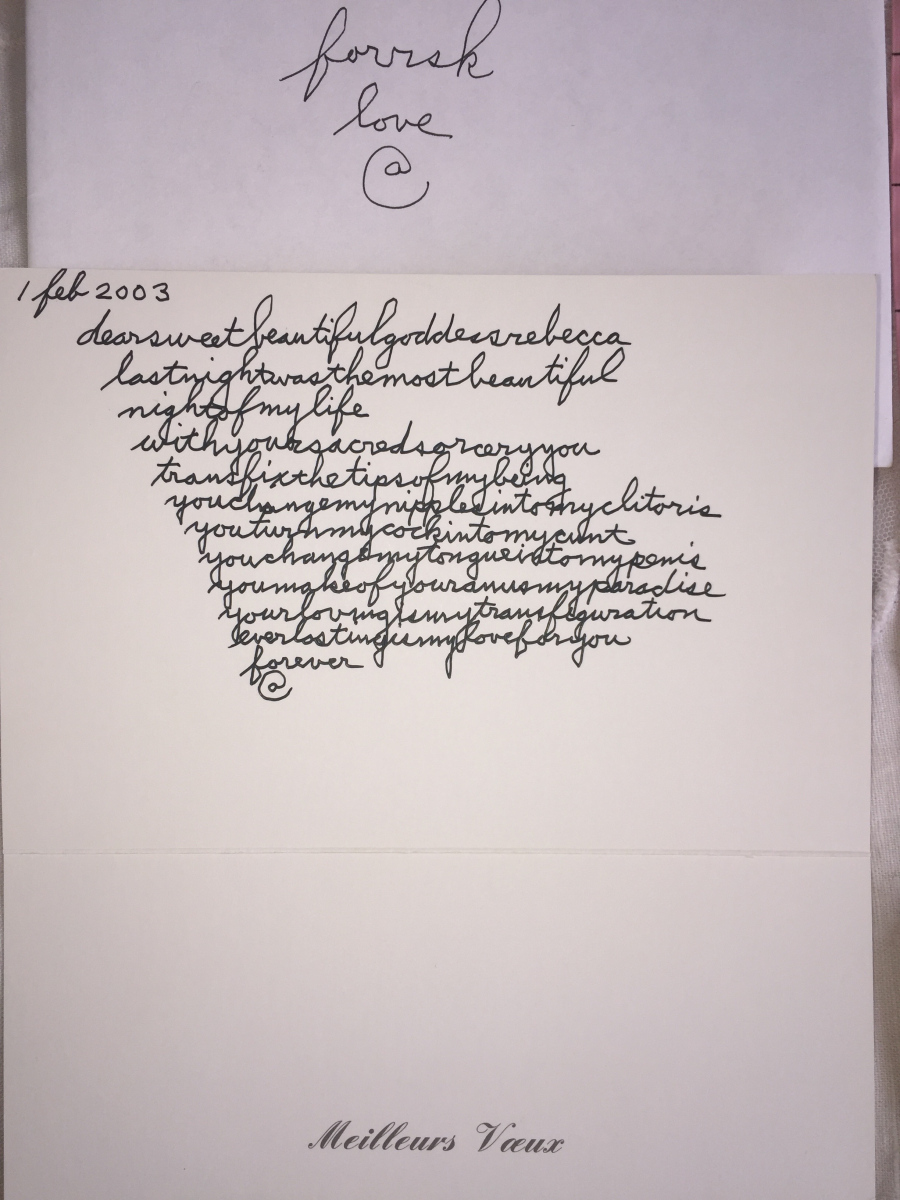 forrsk
love
@
1 feb 2003
dearsweetbeautifulgoddessrebecca
lastnightwasthemostbeautiful
nightofmylife
withyoursacredsorceryyou
transfixthetipsofmybeing
youchangemynipplesintomyclitoris
youturnmycockintomycunt
youchangemytongueintomypenis
youmakeofyouranusmyparadise
yourlovingismytransfiguration
everlastingismyloveforyou
forever
@
Meilleurs Vœux